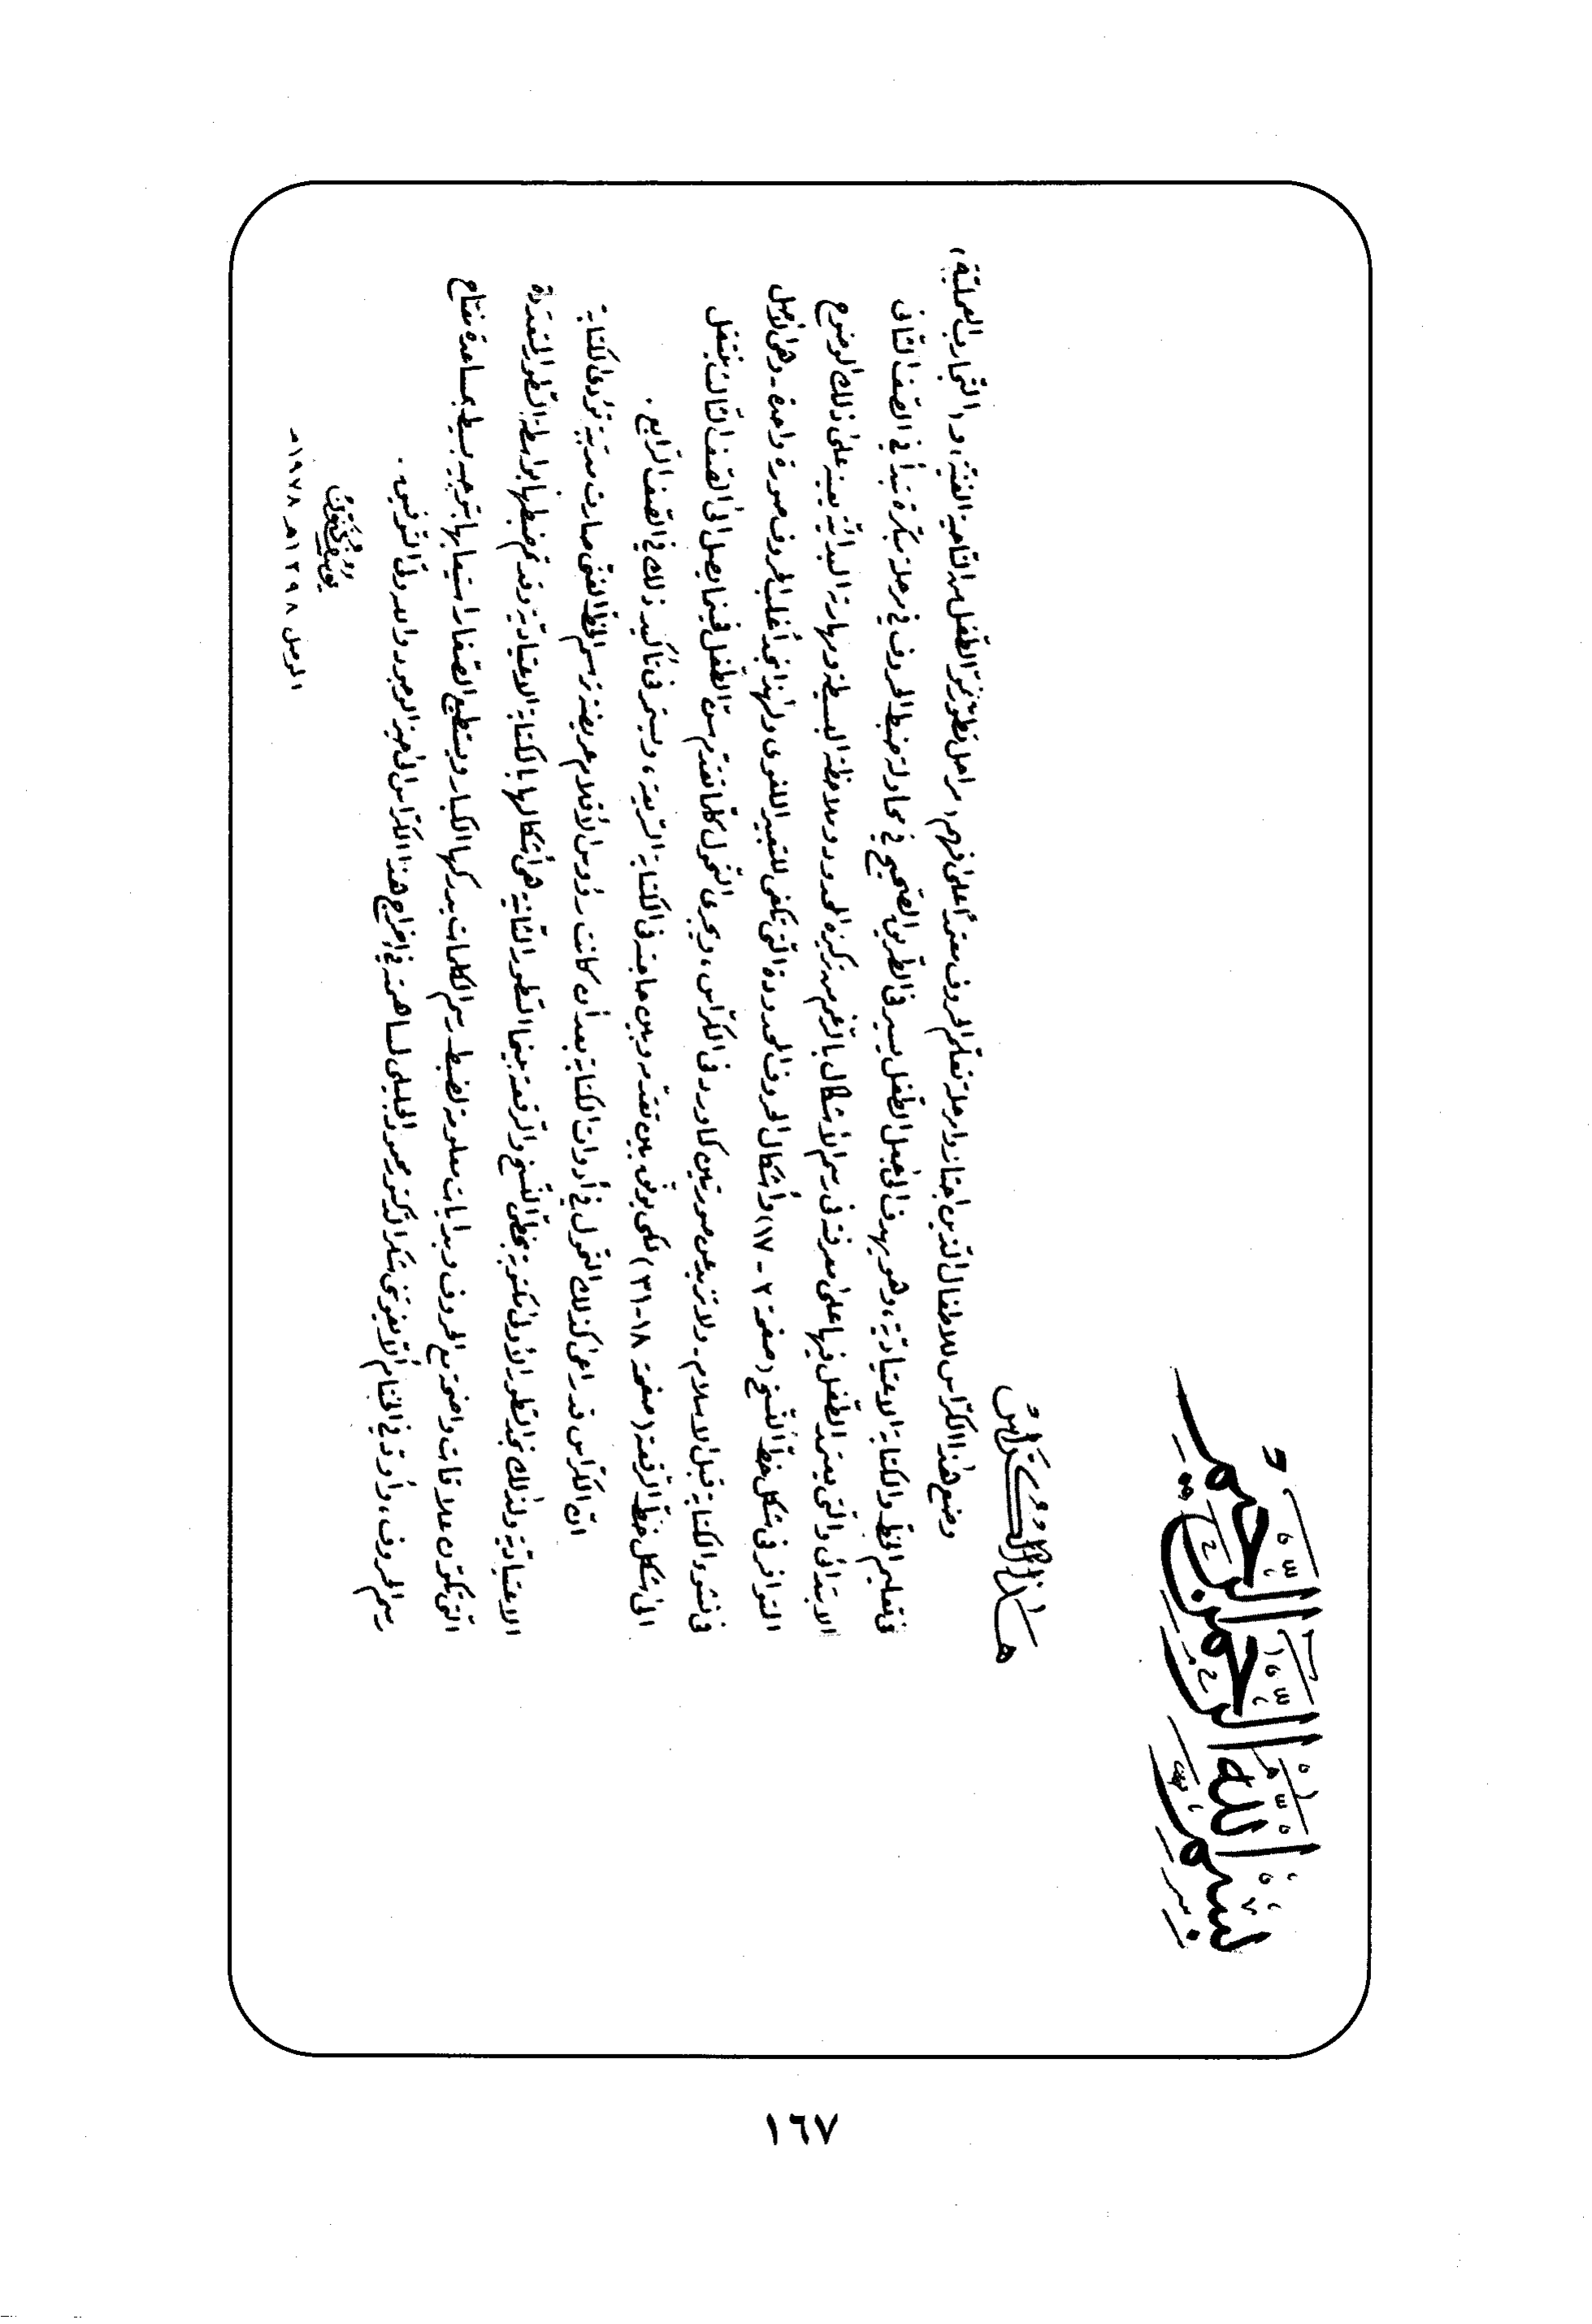 بسم الله الرحمن الرحيم
هذا الكراس
وضع هذا الكرّاس للاطفال الذين اجتازوا مرحلة تعلّم الحروف معتمداً على فهم، مراحل تطوّر نموّ الطفل من الناحية الفنيّة، والتجارب العمليّة،
في تعليم الخط والكتابة الاعتياديّة، وهو يهدف الى جعل الطفل يسير في الطريق الصحيح في محاولة ضبط الحروف في مرحلة مبكرة تبدأ في الصف الثاني
الابتدائي والتي يعتمد الطفل فيها على معرفته في رسم الأشكال بالرغم من تركيزه المحدود وملاحظته البسيطة ومهارته البدائيّة يعينه على ذلك الوضوح
المتوافر في شكل خطّ النّسخ (صفحة ٢ - ١٧) وأشكال الحروف المحدودة التي تكفي للتعبير اللغوي ولهذا نجد أغلب الحروف صورة واحدة - وهي الأصل
في نشوء الكتابة قبل الاسلام - ولا تزيد عن صورتين كما ورد في الكرّاس، ويجري التحول كلما تقدم سن الطّفل فيما يصل الى الصف الثالث ينتقل
الى شكل خطّ الرقعة (صفحة ١٨-٣١) لكي يوفّق بين تقدّمه وبين حاجته في الكتابة السّريعة، ويستمر في تأكيد ذلك في الصف الرّابع .
انّ الكرّاس قد راعى كذلك التحول في أدوات الكتابة بعد أن كانت رؤوس الأقلام عريضة ترسم الخط الفنّي صارت مدببة تؤدي الكتابة
الاعتياديّة ولذلك نجد السّطور الأولى مكتوبة بخطّي النّسخ والرقعة بينما السّطور الثانية هي أشكالها بالكتابة الاعتياديّة وقد تم ضبطها بواسطة السّطور المتعدّدة
التي تكوّن علاقات واضحة مع الحروف وبدايات معلومة لضبط رسم الكلمات يدركها الكبار ويستطيع الصّغار استيعابها بتوجيه بسيط بمساعدة مفتاح
رسم الحروف، وأودّ في الختام ألّا يفوتني شكر الدكتور محمود الجليلي لمساهمته في إخراج هذا الكرّاس الى حيز الوجود والله ولي التّوفيق .
يوسف ذنون
الموصل ١٣٩٨هـ ١٩٧٨م
١٦٧